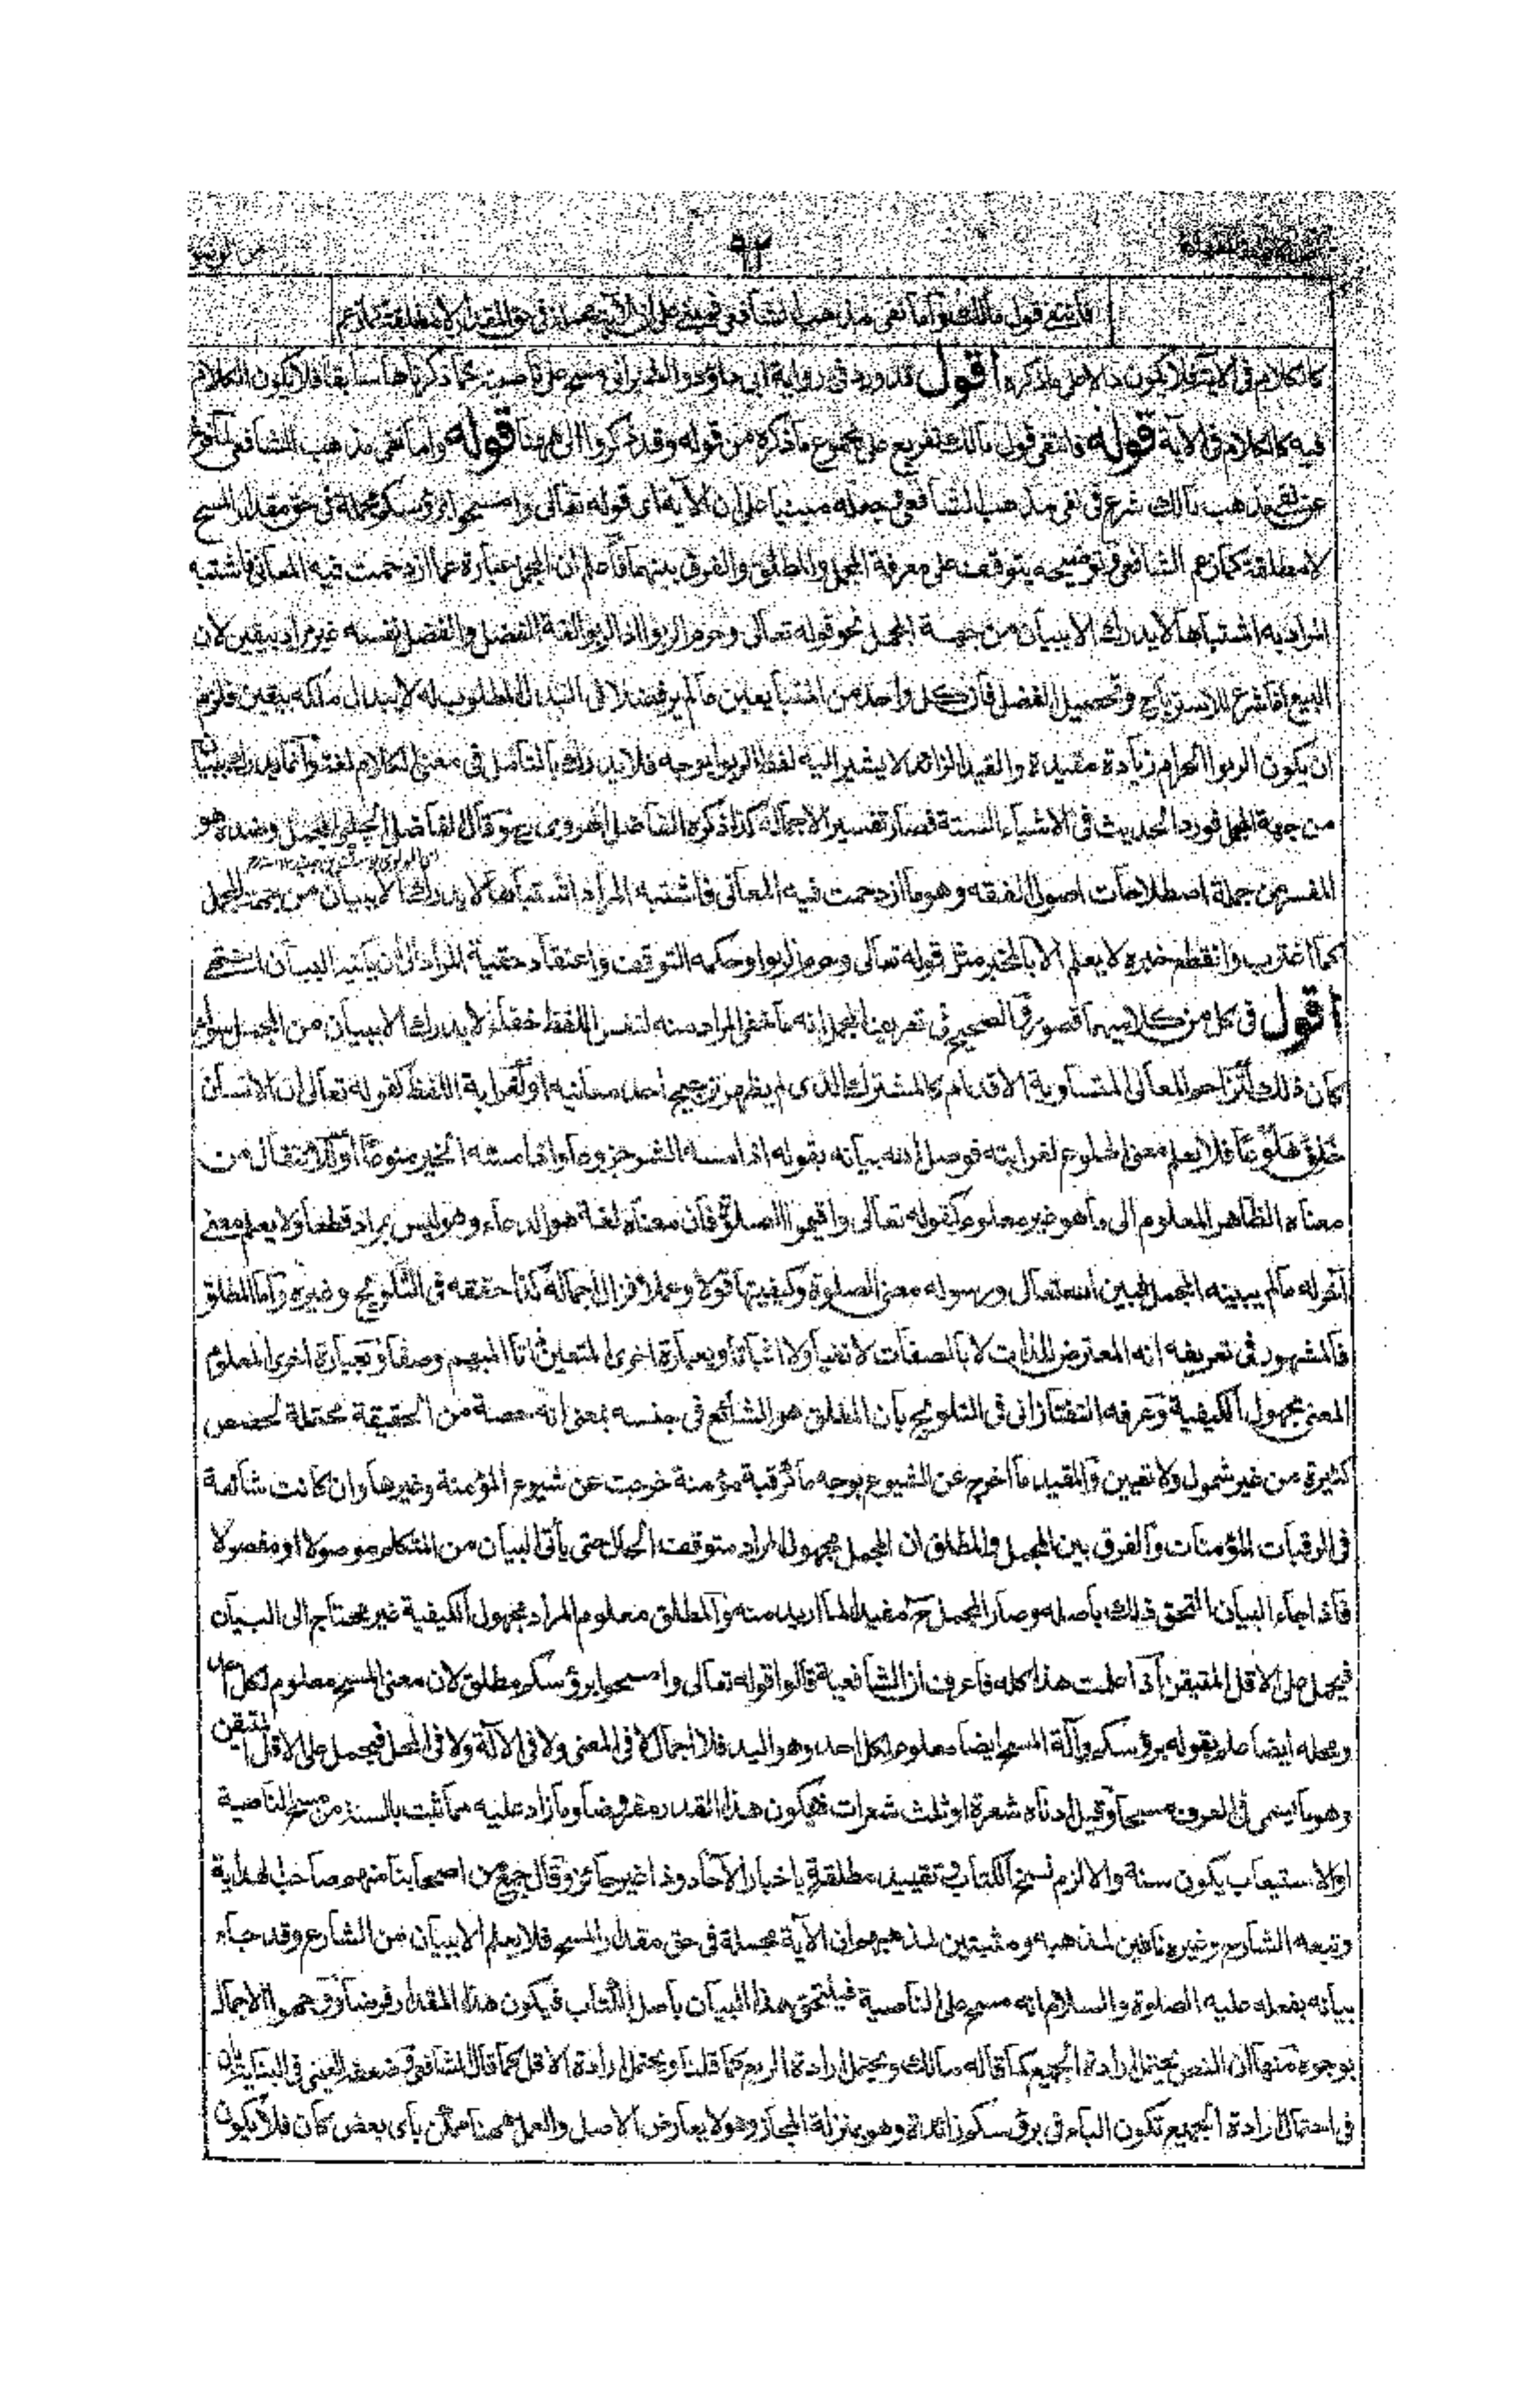 ٩٢
فانتفى قول مالك واما نفى مذهب الشافعى فمبنى على ان الآية مجملة فى حق المقدار لا مطلقة كما زعم
كالكلام فى الآية فلا يكون دالا على ما ذكره اقول قد ورد فى رواية ابى داؤد والطبرانى مسح على ناصيته كما ذكرناها سابقا فلا يكون الكلام
فيه كالكلام فى الآية قوله فانتفى قول مالك تفريع على مجموع ما ذكره من قوله وقد ذكروا الى ههنا قوله واما نفى مذهب الشافعى لما فرغ
عن نفى مذهب مالك شرع فى نفى مذهب الشافعى فجعله مبنيا على ان الآية اى قوله تعالى وامسحوا برؤسكم مجملة فى حق مقدار المسح
لا مطلقة كما زعم الشافعى وتوضيحه يتوقف على معرفة المجمل والمطلق والفرق بينهما فاعلم ان المجمل عبارة عما ازدحمت فيه المعانى فاشتبه
المراد به اشتباها لا يدرك الا ببيان من جهة المجمل نحو قوله تعالى وحرم الربوا اذ الربوا لغة الفضل والفضل نفسه غير مراد بيقين لان
البيع انما شرع للاسترباح وتحصيل الفضل فان كل واحد من المتبايعين ما لم ير فضلا فى البدل المطلوب له لا يبدل ملكه بيقين فلزم
ان يكون الربوا الحرام زيادة مقيدة والقيد الزائد لا يشير اليه لفظ الربوا بوجه فلا يدرك بالتامل فى معنى الكلام لغة وانما يدرك ببيان
من جهة المجمل فورد الحديث فى الاشياء الستة فصار تفسير الاجماله كذا ذكره الفاضل الهروى وقال الفاضل الجلبى المجمل وضده هو
المفسر من جملة اصطلاحات اصول الفقه وهو ما ازدحمت فيه المعانى فاشتبه المراد اشتباها لا يدرك الا ببيان من جهة المجمل
كما اغترب وانقطع خبره لا يعلم الا بالخبر مثل قوله تعالى وحرم الربوا وحكمه التوقف واعتقاد حقية المراد الى ان ياتيه البيان انتهى
اقول فى كل من كلاميهما قصور والصحيح فى تعريف المجمل انه ما خفى المراد منه لنفس اللفظ خفاء لا يدرك الا ببيان من المجمل سواء
كان ذلك لتزاحم المعانى المتساوية الاقدام كالمشترك الذى لم يظهر ترجيح احد معانيه او لغرابة اللفظ كقوله تعالى ان الانسان
خلق هلوعا فلا يعلم معنى الهلوع لغرابته فوصل الله بيانه بقوله اذا مسه الشر جزوعا واذا مسه الخير منوعا او للانتقال من
معناه الظاهر المعلوم الى ما هو غير معلوم كقوله تعالى واقيموا الصلوة فان معناه لغة هو الدعاء وهو ليس بمراد قطعا ولا يعلم معنى
آخر له ما لم يبينه المجمل فبين الله تعالى ورسوله معنى الصلوة وكيفيتها قولا وعملا فزال اجماله كذا حققه فى التلويح وغيره واما المطلق
فالمشهور فى تعريفه انه المعترض للذات لا بالصفات لا نفيا ولا اثباتا وبعبارة اخرى المتعين ذاتا المبهم وصفا وبعبارة اخرى المعلوم
المعنى مجهول الكيفية وعرفه التفتازانى فى التلويح بان المطلق هو الشائع فى جنسه بمعنى انه حصة من الحقيقة محتملة لحصص
كثيرة من غير شمول ولا تعيين والمقيد ما اخرج عن الشيوع بوجه ما كرقبة مؤمنة خرجت عن شيوع المؤمنة وغيرها وان كانت شائعة
فى الرقبات المؤمنات والفرق بين المجمل والمطلق ان المجمل مجهول المراد متوقف العمل حتى يأتى البيان من المتكلم موصولا او مفصولا
فاذا جاء البيان التحق ذلك باصله وصار المجمل ح مفيدا لما اريد منه والمطلق معلوم المراد مجهول الكيفية غير محتاج الى البيان
فيحمل على الاقل المتيقن اذا علمت هذا كله فاعرف ان الشافعية قالوا قوله تعالى وامسحوا برؤسكم مطلق لان معنى المسح معلوم لكل احد
ومحله ايضا معلوم بقوله برؤسكم وآلة المسح ايضا معلوم لكل احد وهو اليد فلا اجمال لا فى المعنى ولا فى الآلة ولا فى المحل فيحمل على الاقل المتيقن
وهو ما يسمى فى العرف مسحا وقيل ادناه شعرة او ثلث شعرات فيكون هذا القدر مفروضا وما زاد عليه مما ثبت بالسنة من مسح الناصية
او الاستيعاب يكون سنة والا لزم نسخ الكتاب وتقييد مطلقه باخبار الآحاد وذا غير جائز وقال جمع من اصحابنا منهم صاحب الهداية
وتبعه الشارح وغيره نافين لمذهبه ومثبتين لمذهبهم ان الآية مجملة فى حق مقدار المسح فلا يعلم الا ببيان من الشارع وقد جاء
بيانه بفعله عليه الصلوة والسلام انه مسح على الناصية فيلتحق هذا البيان باصل الكتاب فيكون هذا المقدار فرضا ووجهوا الاجمال
بوجوه منها ان النص يحتمل ارادة الجميع كما قاله مالك ويحتمل ارادة الربع كما قلنا ويحتمل ارادة الاقل كما قال الشافعى وضعفه العينى فى البناية بان
فى احتمال ارادة الجميع تكون الباء فى برؤسكم زائدة وهو بمنزلة المجاز وهو لا يعارض الاصل والعمل ههنا ممكن باى بعض كان فلا يكون